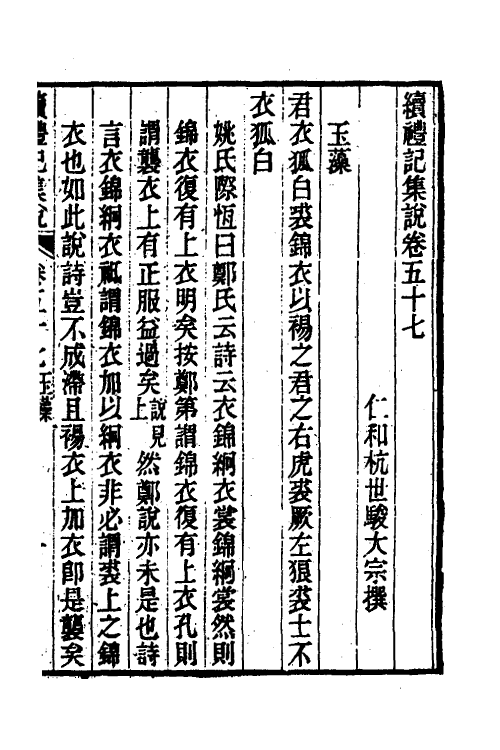 續禮記集說卷五十七
仁和杭世駿大宗撰
玉藻
君衣狐白裘錦衣以裼之君之右虎裘厥左狼裘士不
衣狐白
姚氏際恆曰鄭氏云詩云衣錦絅衣裳錦絅裳然則
錦衣復有上衣明矣按鄭第謂錦衣復有上衣孔則
謂襲衣上有正服益過矣說見上然鄭說亦未是也詩
言衣錦絅衣祗謂錦衣加以絅衣非必謂裘上之錦
衣也如此說詩豈不成滯且裼衣上加衣卽是襲矣
續禮記集說 卷五十七玉藻 一